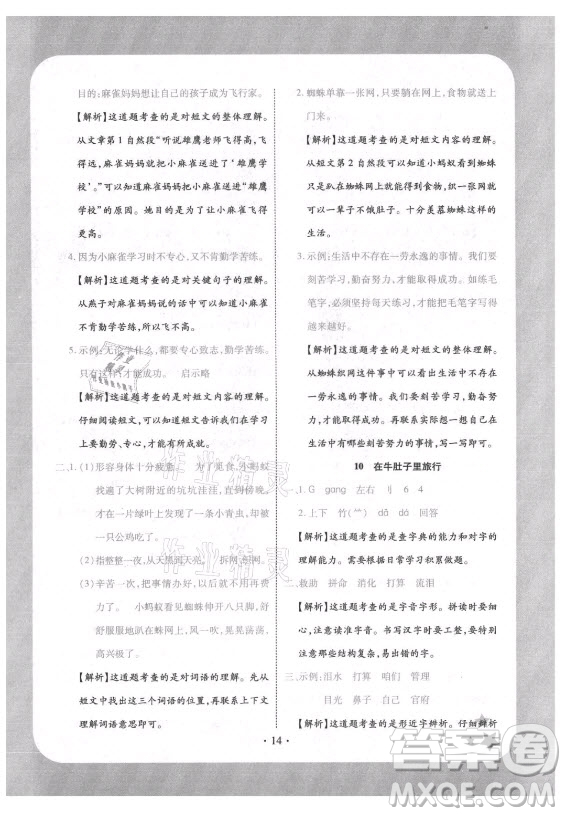 目的:麻雀妈妈想让自己的孩子成为飞行家。
【解析】这道题考查的是对短文的整体理解。
从文章第1自然段“听说雄鹰老师飞得高,飞
得远,麻雀妈妈把家里小麻雀送进了‘雄鹰学
校’。”可以知道麻雀妈妈把小麻雀送进“雄鹰
学校”的原因。她目的是为了让小麻雀飞得
更高。
4. 因为小麻雀学习时不专心,又不肯勤学苦练。
【解析】这道题考查的是对关键句子的理解。
从燕子对麻雀妈妈说的话中可以知道小麻雀
不肯勤学苦练,所以没学会飞行。
5. 示例:无论学什么,都要专心致志,勤学苦练。
只有这样,才能成功。 启示略
【解析】这道题考查的是对短文内容的理解。
仔细阅读短文,可以知道短文告诉我们在学习
上要勤劳、专心,才能成功的道理。
二、1. (1)形容身体十分疲惫。 为了觅食,小蚂蚁
找遍了大树附近的坑坑洼洼,好不容易
才在一片绿叶上发现了一条小青虫,却
又被同伴抢走了。
(2)指整整一夜,从天黑到天亮。
(3)辛苦一次,把事情办好,以后不再费力
了。 小蚂蚁看见蜘蛛伸开八只脚,舒
舒服服地趴在蛛网上,风一吹,晃晃荡荡,
高兴极了。
【解析】这道题考查的是对词语的理解。先
从短文中找出这三个词语的位置,再联系上下文
理解词语意思即可。
2. 蜘蛛单靠一张网,只要躺在网上,食物就送上
门来。
【解析】这道题考查的是对短文内容的理解。
从短文第2自然段可以知道小蚂蚁看到蜘蛛
趴在蜘蛛网上就能得到食物,感觉蜘蛛这样就
可以一辈子不饿肚子。十分羡慕蜘蛛这样的
生活。
3. 示例:生活中不存在一劳永逸的事情。我们要
刻苦学习,勤奋努力,才能取得成功。如练毛
笔字,必须坚持每天练习,才能把毛笔字写得
越来越好。
【解析】这道题考查的是对短文的整体理解。
从蜘蛛织网可以知道生活中不存在一劳永逸
的事情,一劳永逸的背后是刻苦学习、勤奋
努力,只有这样,才会取得成功。再联系自己
生活中有哪些刻苦努力的事情,写下来即可。
10 在牛肚子里旅行
一、1. G gang 左右 刂 6 4
2. 上下 竹(⺮) dā dá 回答
【解析】这道题考查的是查字典的能力和对字的
理解能力。根据日常学习积累做题。
二、救助 拼命 消化 打算 流泪
【解析】这道题考查的是字音字形。拼读时要细
心,注意读准字音。书写汉字时,要注意字的
结构和复杂偏旁。
三、示例:泪水 打算 咱们 管理
目光 鼻子 自己 官府
【解析】这道题考查的是形近字辨析。仔细辨析
· 14 ·
作业精灵
作业精灵
答案圈
MXQE.COM